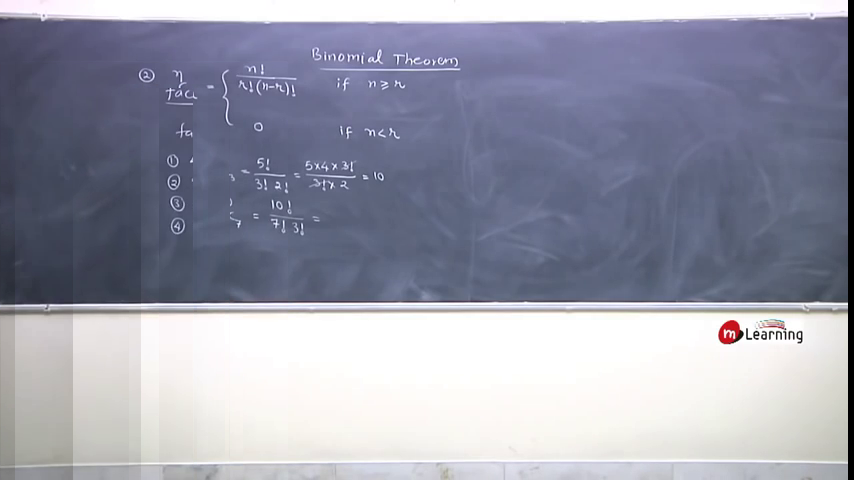 Binomial Theorem
② n = { n! / r!(n-r)! if n ≥ r
0 if n < r
①
② 3 = 5! / 3! 2! = 5×4×3! / 3!×2 = 10
③
④ 7 = 10! / 7! 3! =
m Learning